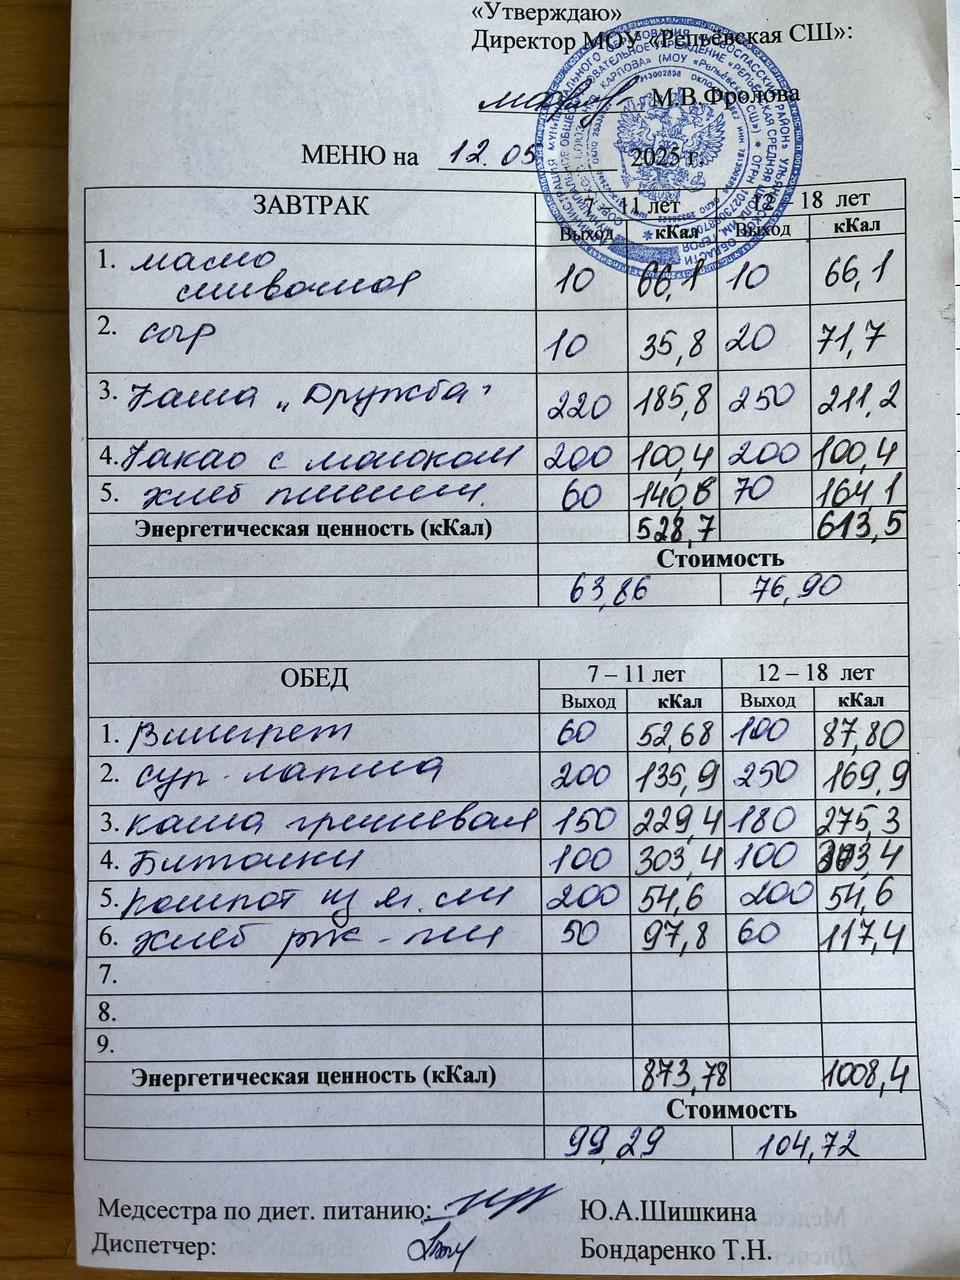 «Утверждаю»
Директор МОУ «Репьёвская СШ»:
М.В.Фролова
МЕНЮ на 12.05 2025 г.
ЗАВТРАК 7 – 11 лет 12 – 18 лет
Выход кКал Выход кКал
1. масло
сливочное 10 66,1 10 66,1
2. сыр 10 35,8 20 71,7
3. Каша „Дружба" 220 185,8 250 211,2
4. Какао с молоком 200 100,4 200 100,4
5. хлеб пшенич. 60 140,6 70 164,1
Энергетическая ценность (кКал) 528,7 613,5
Стоимость
63,86 76,90
ОБЕД 7 – 11 лет 12 – 18 лет
Выход кКал Выход кКал
1. Винегрет 60 52,68 100 87,80
2. суп - лапша 200 135,9 250 169,9
3. каша гречневая 150 229,4 180 275,3
4. Биточки 100 303,4 100 303,4
5. компот из яг. см 200 54,6 200 54,6
6. хлеб рж - пш 50 97,8 60 117,4
7.
8.
9.
Энергетическая ценность (кКал) 873,78 1008,4
Стоимость
99,29 104,72
Медсестра по диет. питанию: Ю.А.Шишкина
Диспетчер: Бондаренко Т.Н.